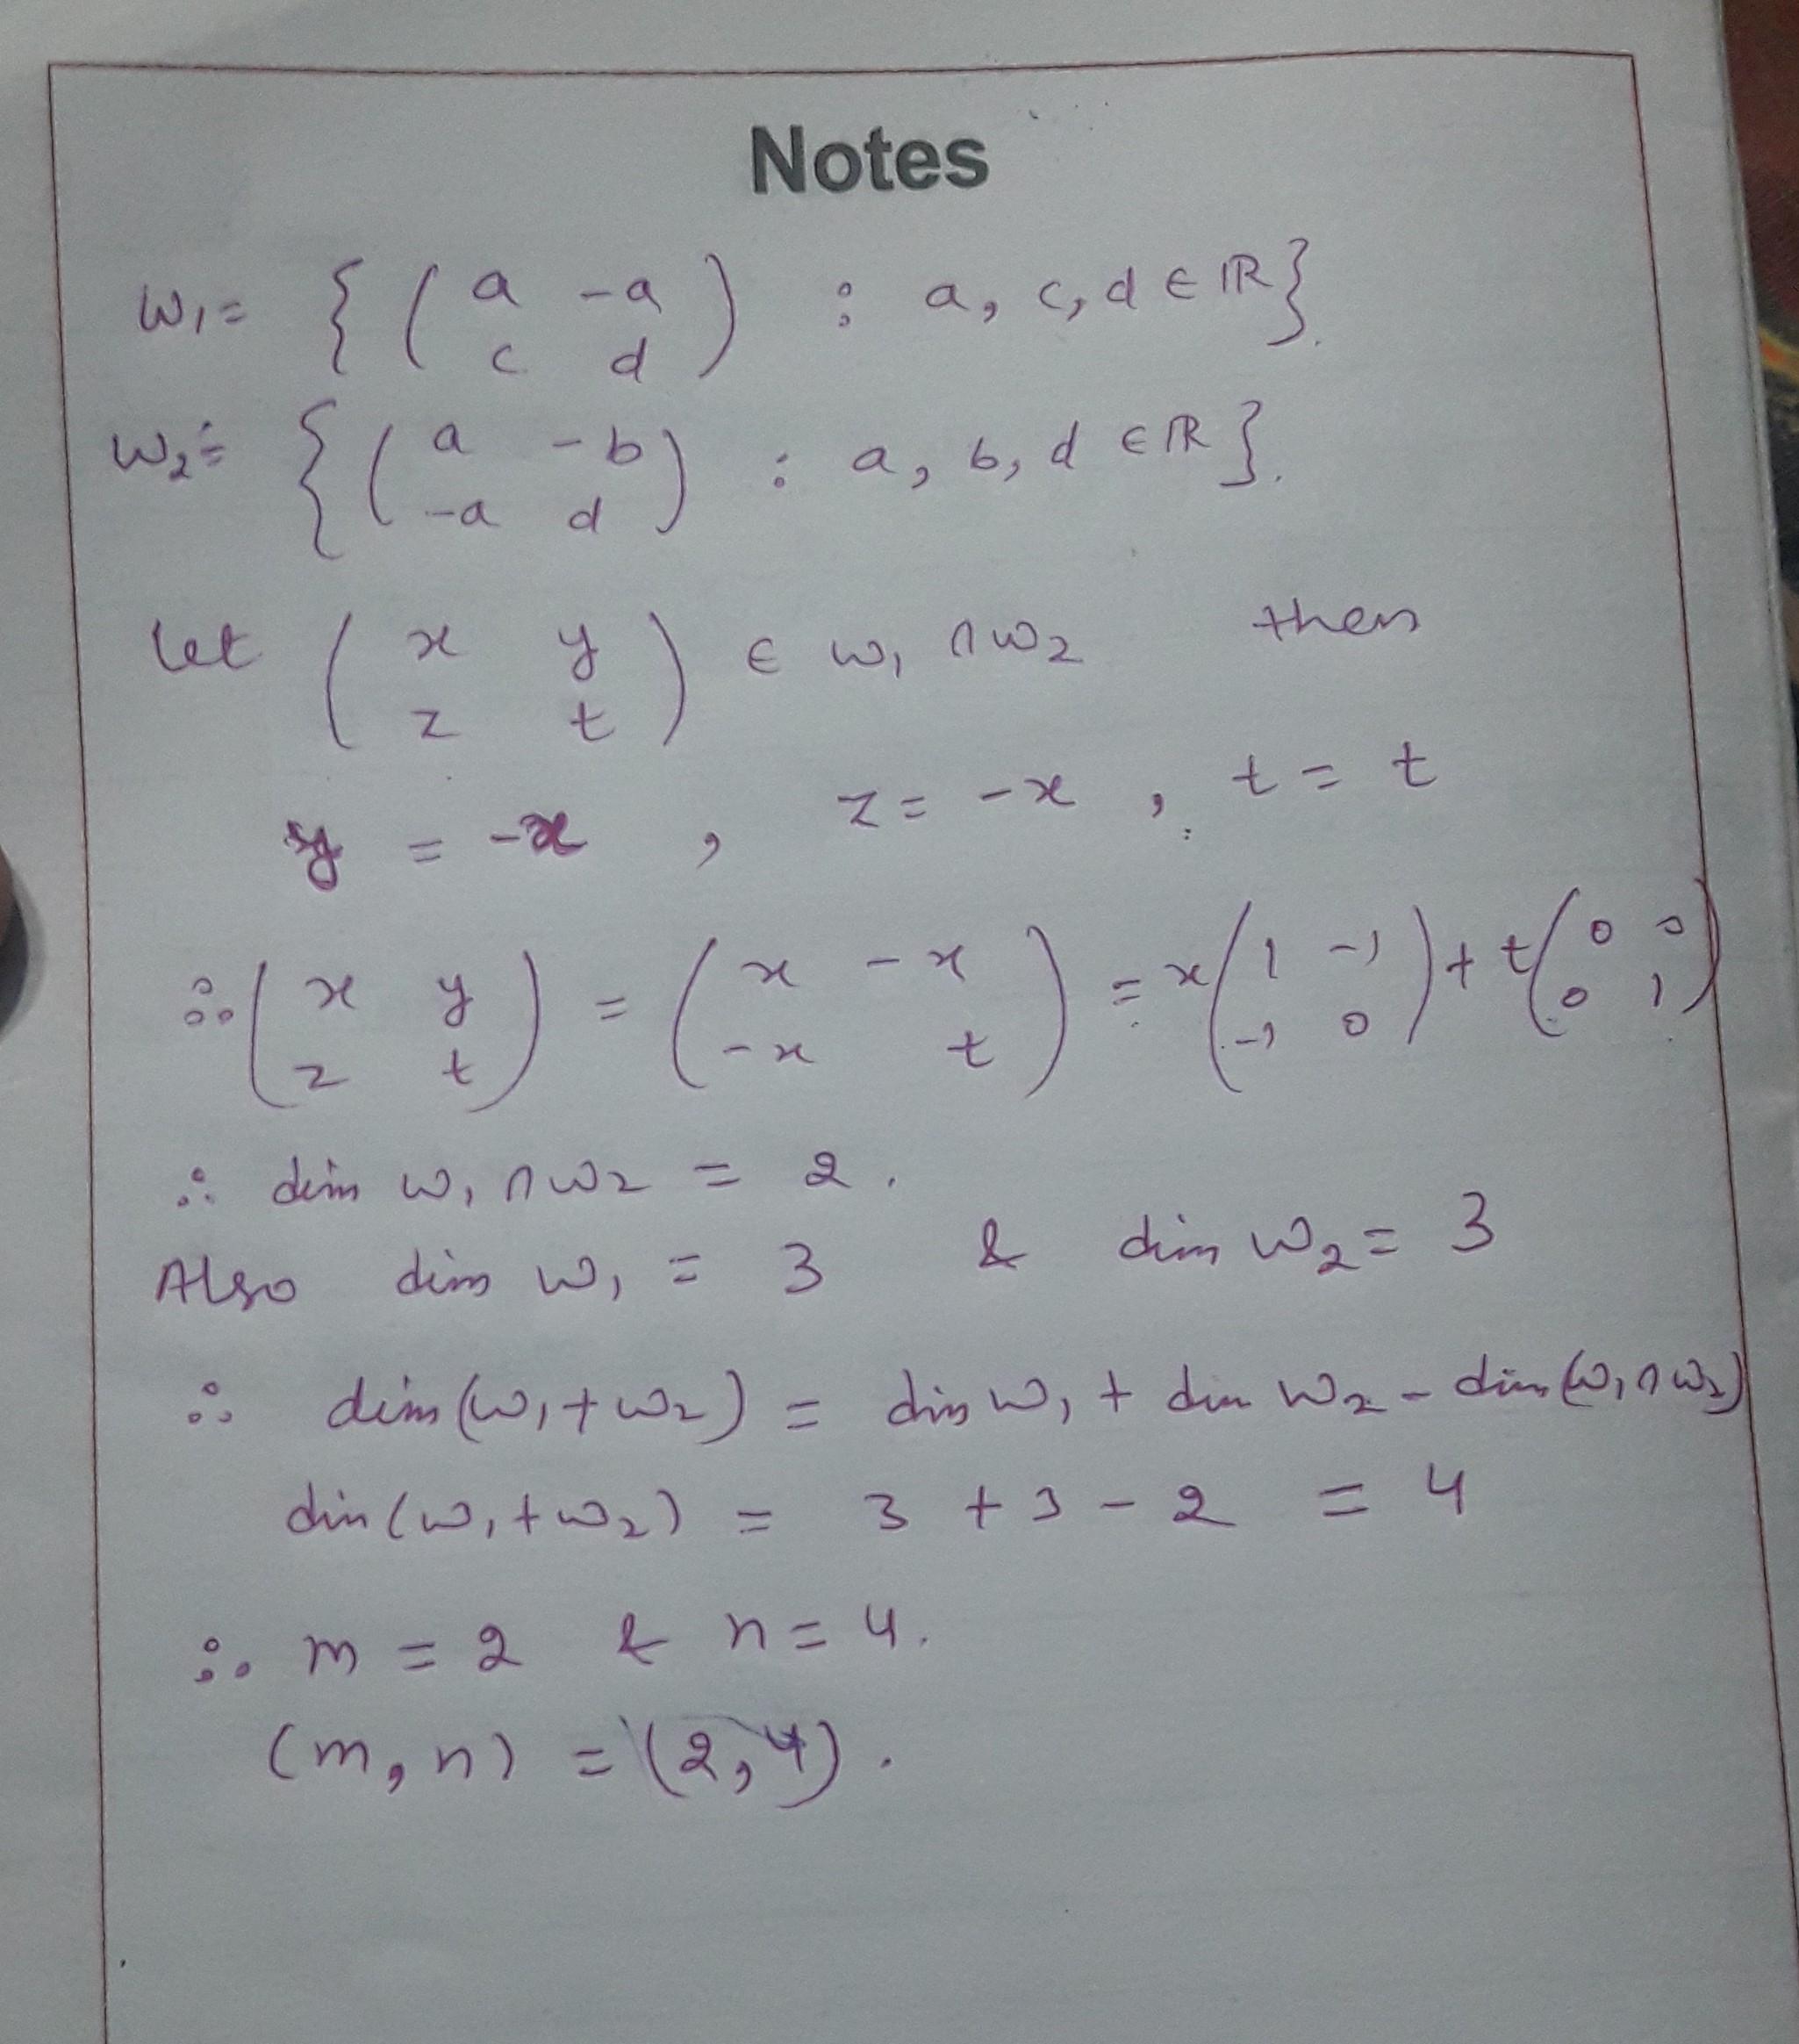 Notes
W₁ = { ( a -a ; c d ) : a, c, d ∈ ℝ }.
W₂ = { ( a -b ; -a d ) : a, b, d ∈ ℝ }.
Let ( x y ; z t ) ∈ W₁ ∩ W₂ then
y = -x , z = -x , t = t
∴ ( x y ; z t ) = ( x -x ; -x t ) = x ( 1 -1 ; -1 0 ) + t ( 0 0 ; 0 1 )
∴ dim W₁ ∩ W₂ = 2 .
Also dim W₁ = 3 & dim W₂ = 3
∴ dim (W₁ + W₂) = dim W₁ + dim W₂ - dim (W₁ ∩ W₂)
dim (W₁ + W₂) = 3 + 3 - 2 = 4
∴ m = 2 & n = 4.
(m, n) = (2, 4) .